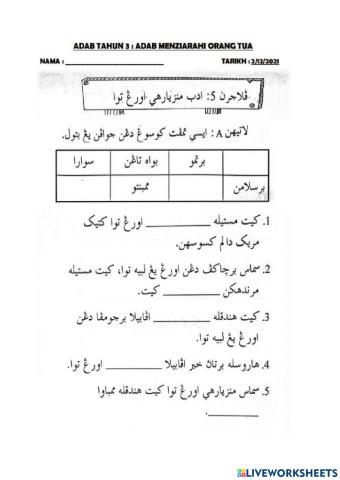 ADAB TAHUN 3 : ADAB MENZIARAHI ORANG TUA
NAMA : ____________________ TARIKH : 2/12/2021
ڤلاجرن 5: ادب منزيارهي اورڠ توا
لاتيهن A : ايسي تمڤت كوسوڠ دڠن جواڤن يڠ بتول.
برتمو بواه تاڠن سوارا
برسلامن ممبنتو
1. كيت مستيله __________ اورڠ توا كتيک
مريک دالم كسوسهن.
2. سماس برچاكڤ دڠن اورڠ يڠ لبيه توا، كيت مستيله
مرندهكن __________ كيت.
3. كيت هندقله __________ اڤابيلا برجومڤا دڠن
اورڠ يڠ لبيه توا.
4. هاروسله برتاڽ خبر اڤابيلا __________ اورڠ توا.
5. سماس منزيارهي اورڠ توا كيت هندقله ممباوا
__________.
LIVEWORKSHEETS